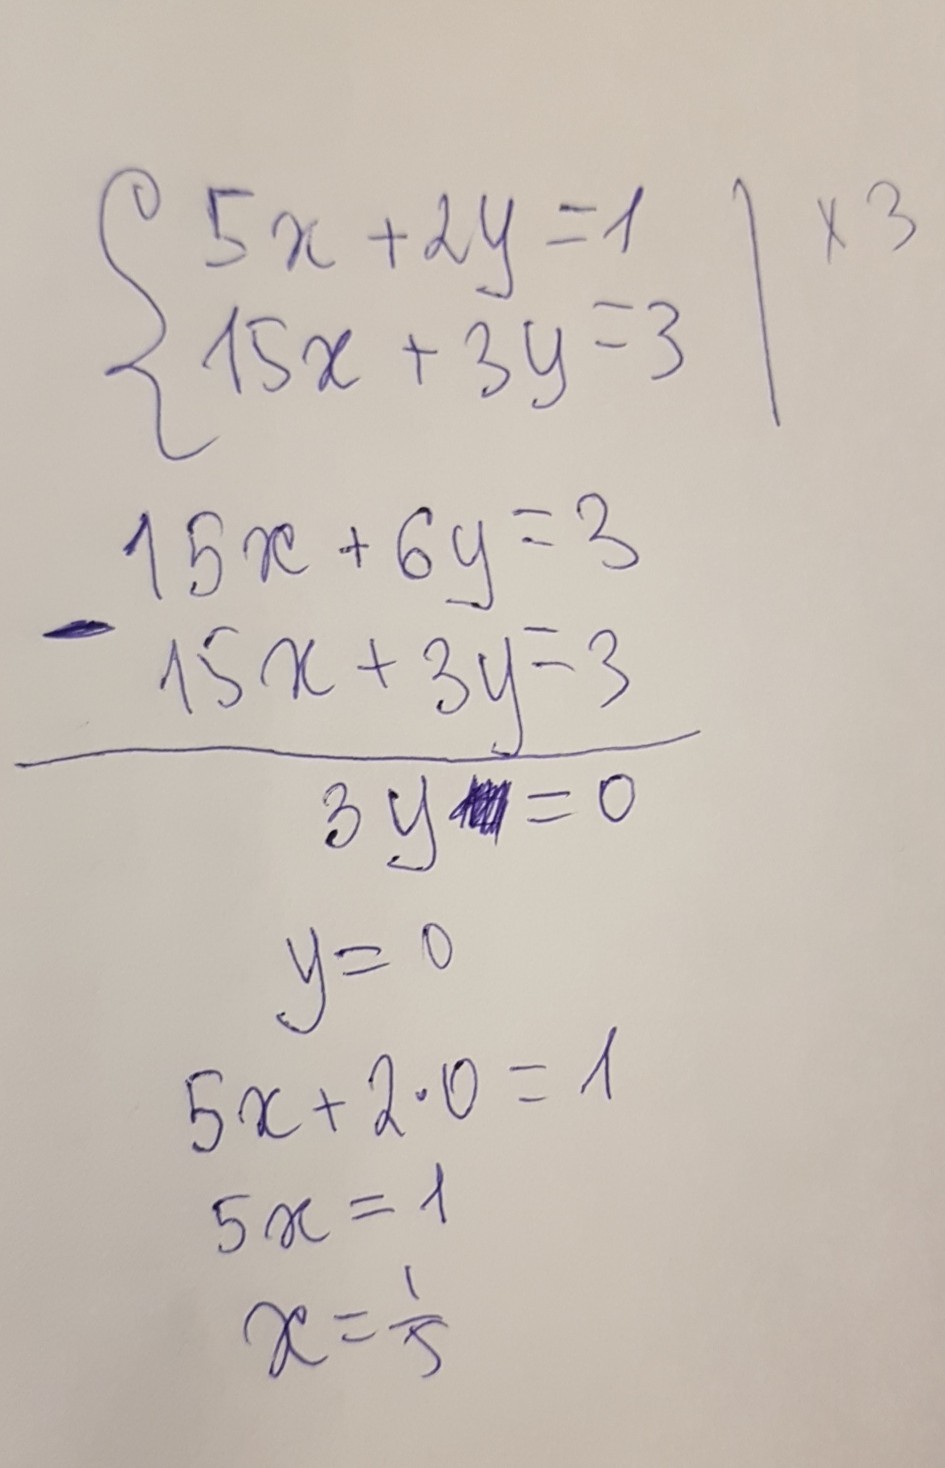 5x + 2y = 1 | × 3
15x + 3y = 3
15x + 6y = 3
-
15x + 3y = 3
3y = 0
y = 0
5x + 2·0 = 1
5x = 1
x = 1/5